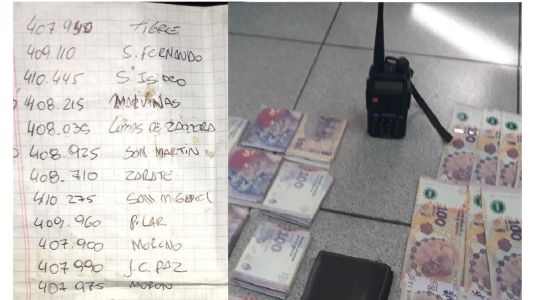 407.940 TIGRE
409.110 S. FERNANDO
410.445 S. ISIDRO
408.215 MALVINAS
408.035 LOMAS DE ZAMORA
408.925 SAN MARTIN
408.710 ZARATE
410 275 SAN MIGUEL
409.960 PILAR
407.900 MORENO
407.990 J.C. PAZ
407.975 MORON
100
100
100
100
100